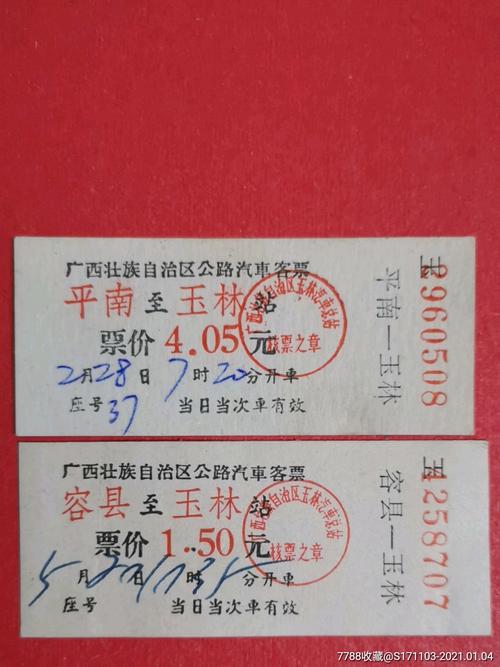 广西壮族自治区公路汽車客票
平南 至 玉林 站
票价 4.05 元
2月28日 7时20分开車
座号 37 当日当次車有效
核票之章
平南—玉林
玉 2960508
广西壮族自治区公路汽車客票
容县 至 玉林 站
票价 1.50 元
5月 日 时 分开車
座号 当日当次車有效
核票之章
容县—玉林
玉 4258707
7788收藏@S171103-2021.01.04